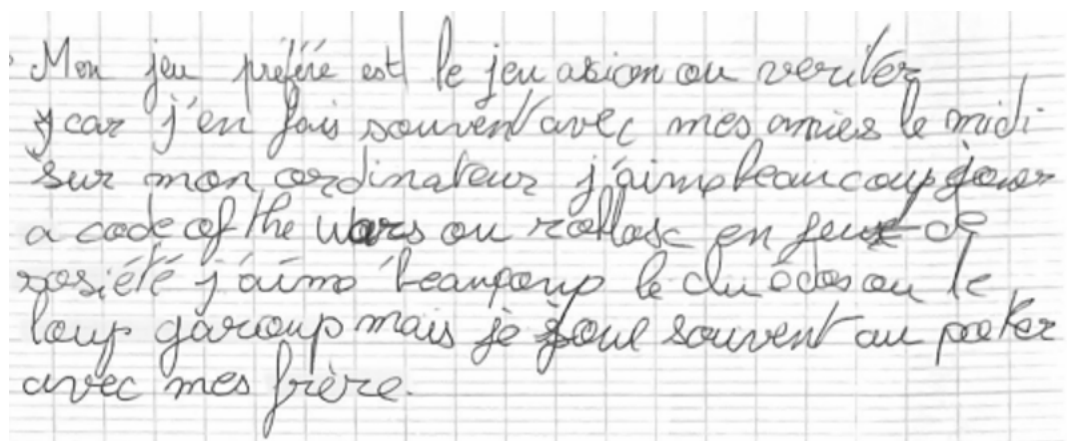 Mon jeu préféré est le jeu asion ou veriter
car j'en fais souvent avec mes amies le midi
sur mon ordinateur j'aime beaucoup jouer
a code of the wars ou en jeux de
sosiété j'aime beaucoup le cluédos ou le
loup garoup mais je joue souvent au poker
avec mes frère.